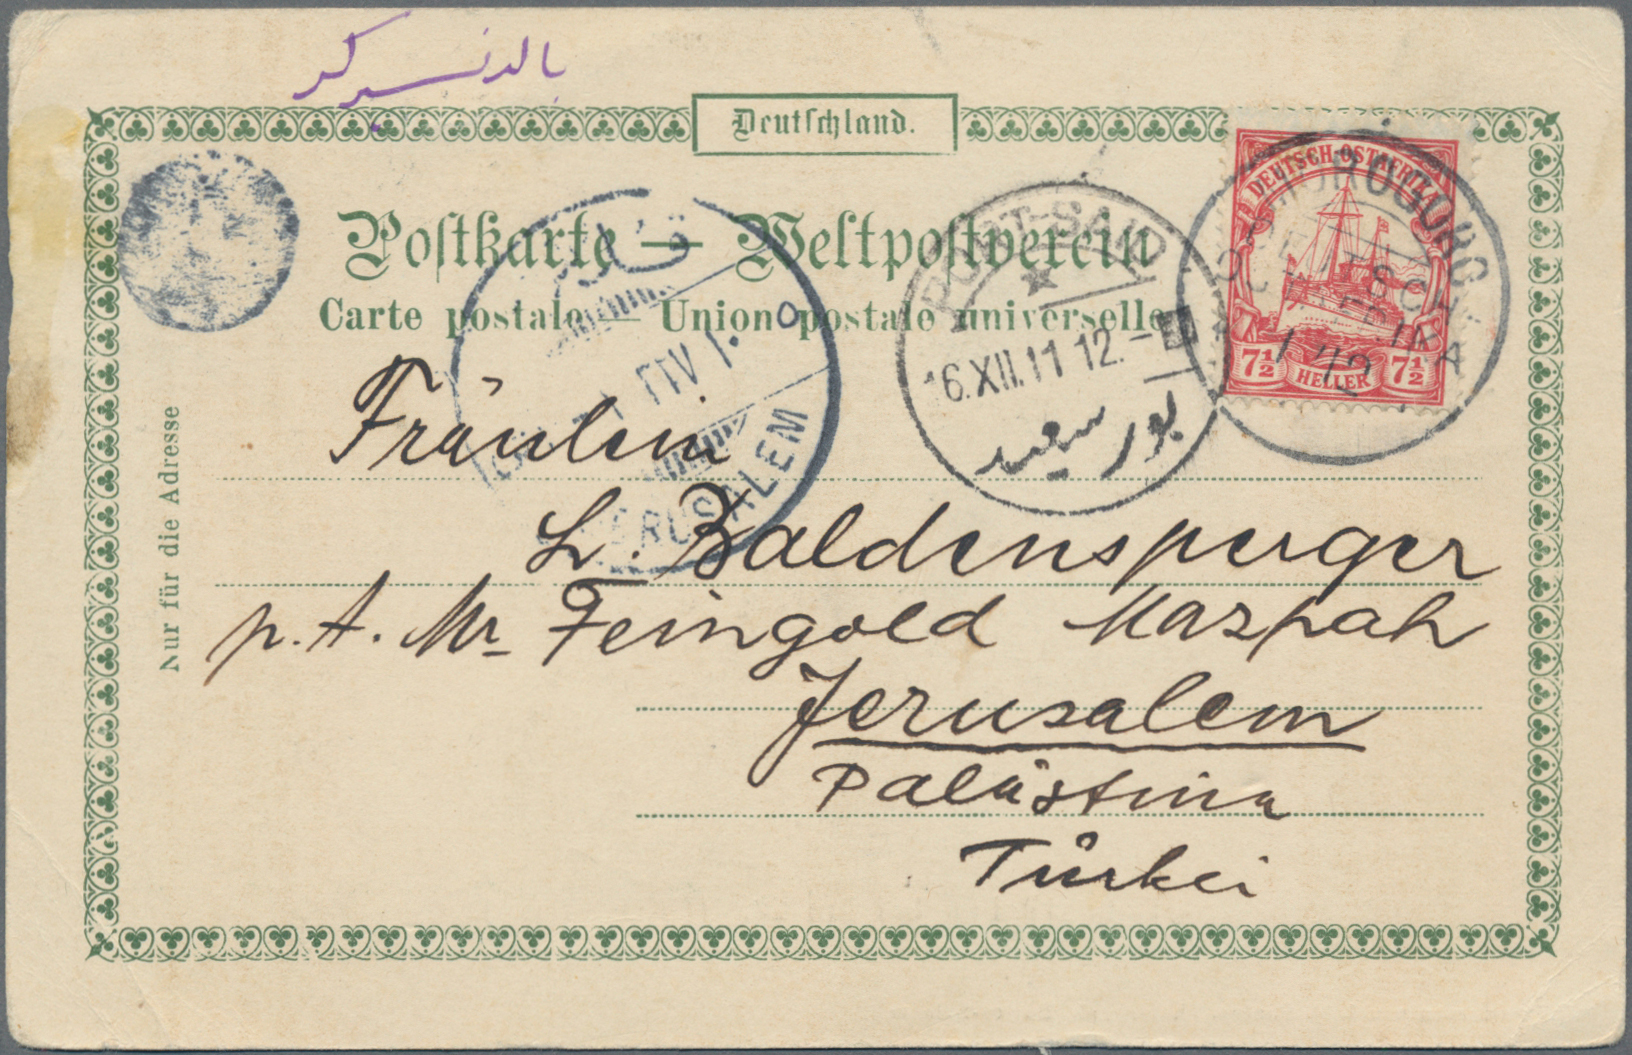 Deutschland.
Postkarte — Weltpostverein
Carte postale — Union postale universelle
Nur für die Adresse
DEUTSCH-OSTAFRIKA
7½ HELLER 7½
PORT-SAID
6.XII.11 12.-
بور سعيد
JERUSALEM
Fräulein
L. Baldensperger
p. A. Mr Feingold Mazpah
Jerusalem
Palästina
Türkei